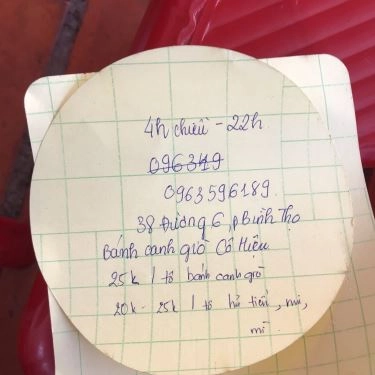 4h chiều - 22h
096349
0963596189.
38 Đường 6, p Bình Thọ
Bánh canh giò Cô Hiếu
25k / tô bánh canh giò
20k - 25k / tô hủ tiếu, nui,
mì